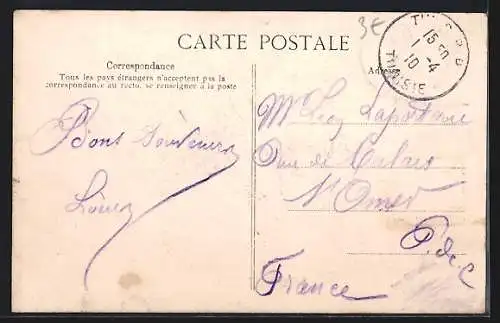 3E
CARTE POSTALE
Correspondance
Tous les pays étrangers n'acceptent pas la
correspondance au recto, se renseigner à la poste
TUNIS R.P.
15 50
1 -4
10
TUNISIE
Bons Souvenirs
Rue de
St Omer
P. de C.
France